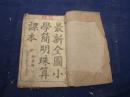 最新全圖小
學簡明珠算
課本